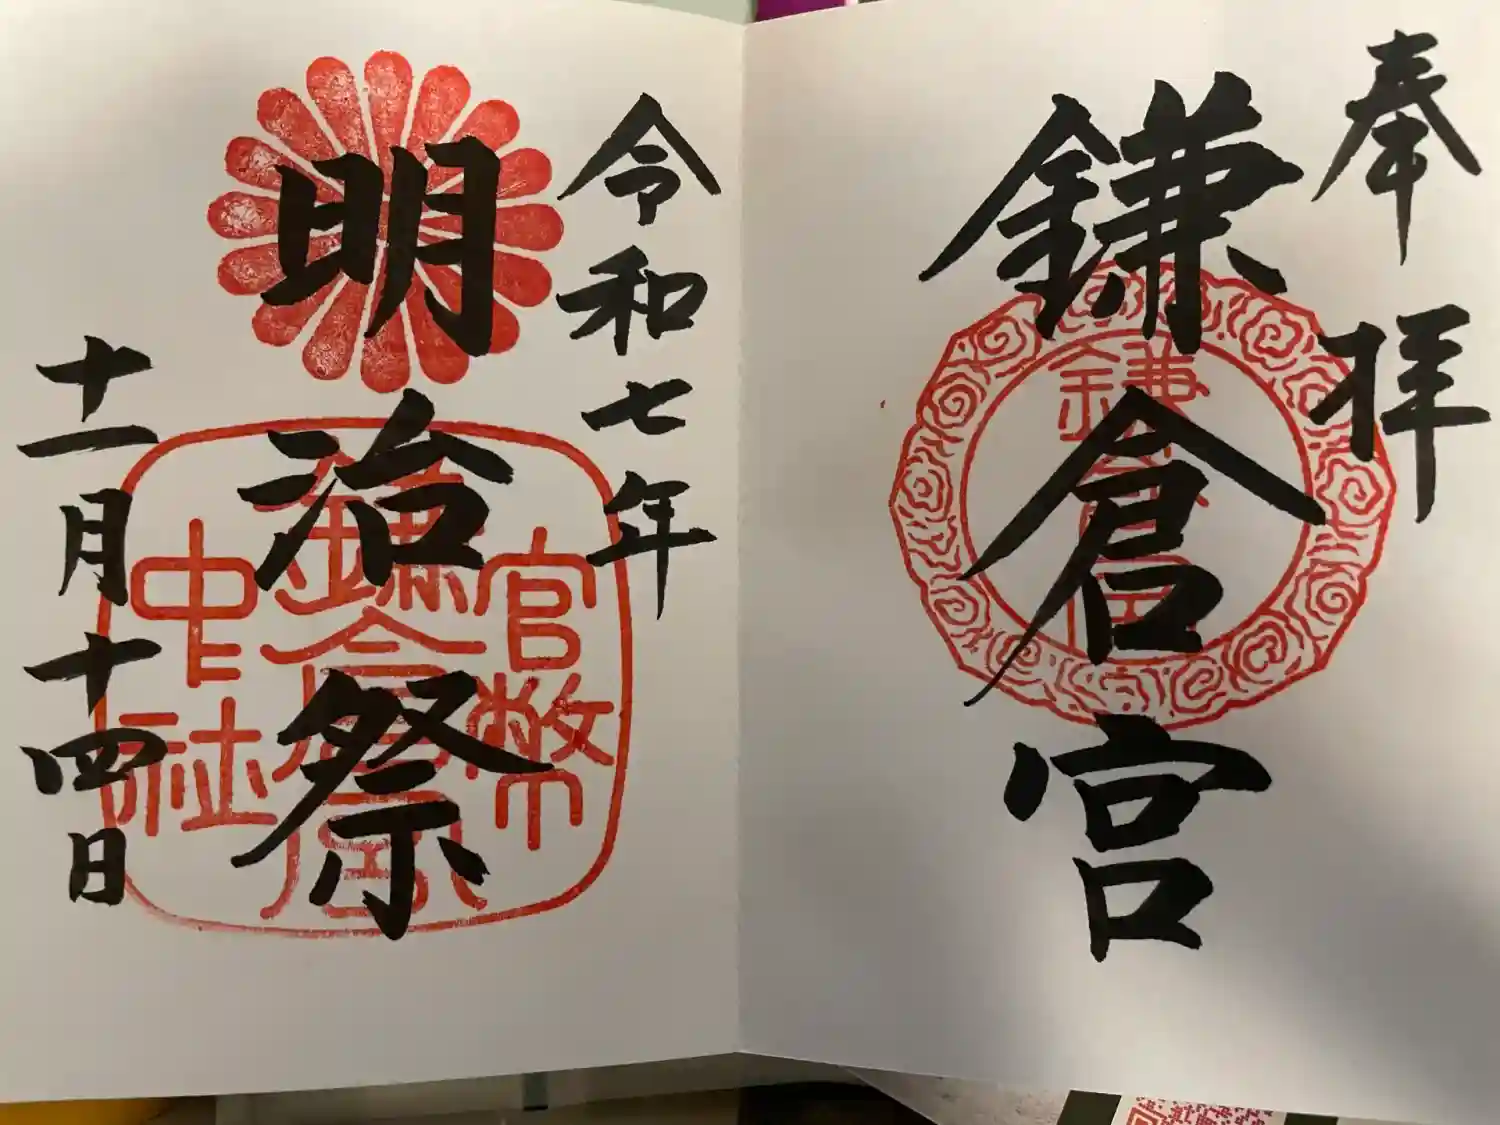 奉拝
鎌倉宮
鎌倉宮
令和七年
明治祭
十一月十四日
官幣
鎌倉宮
中社